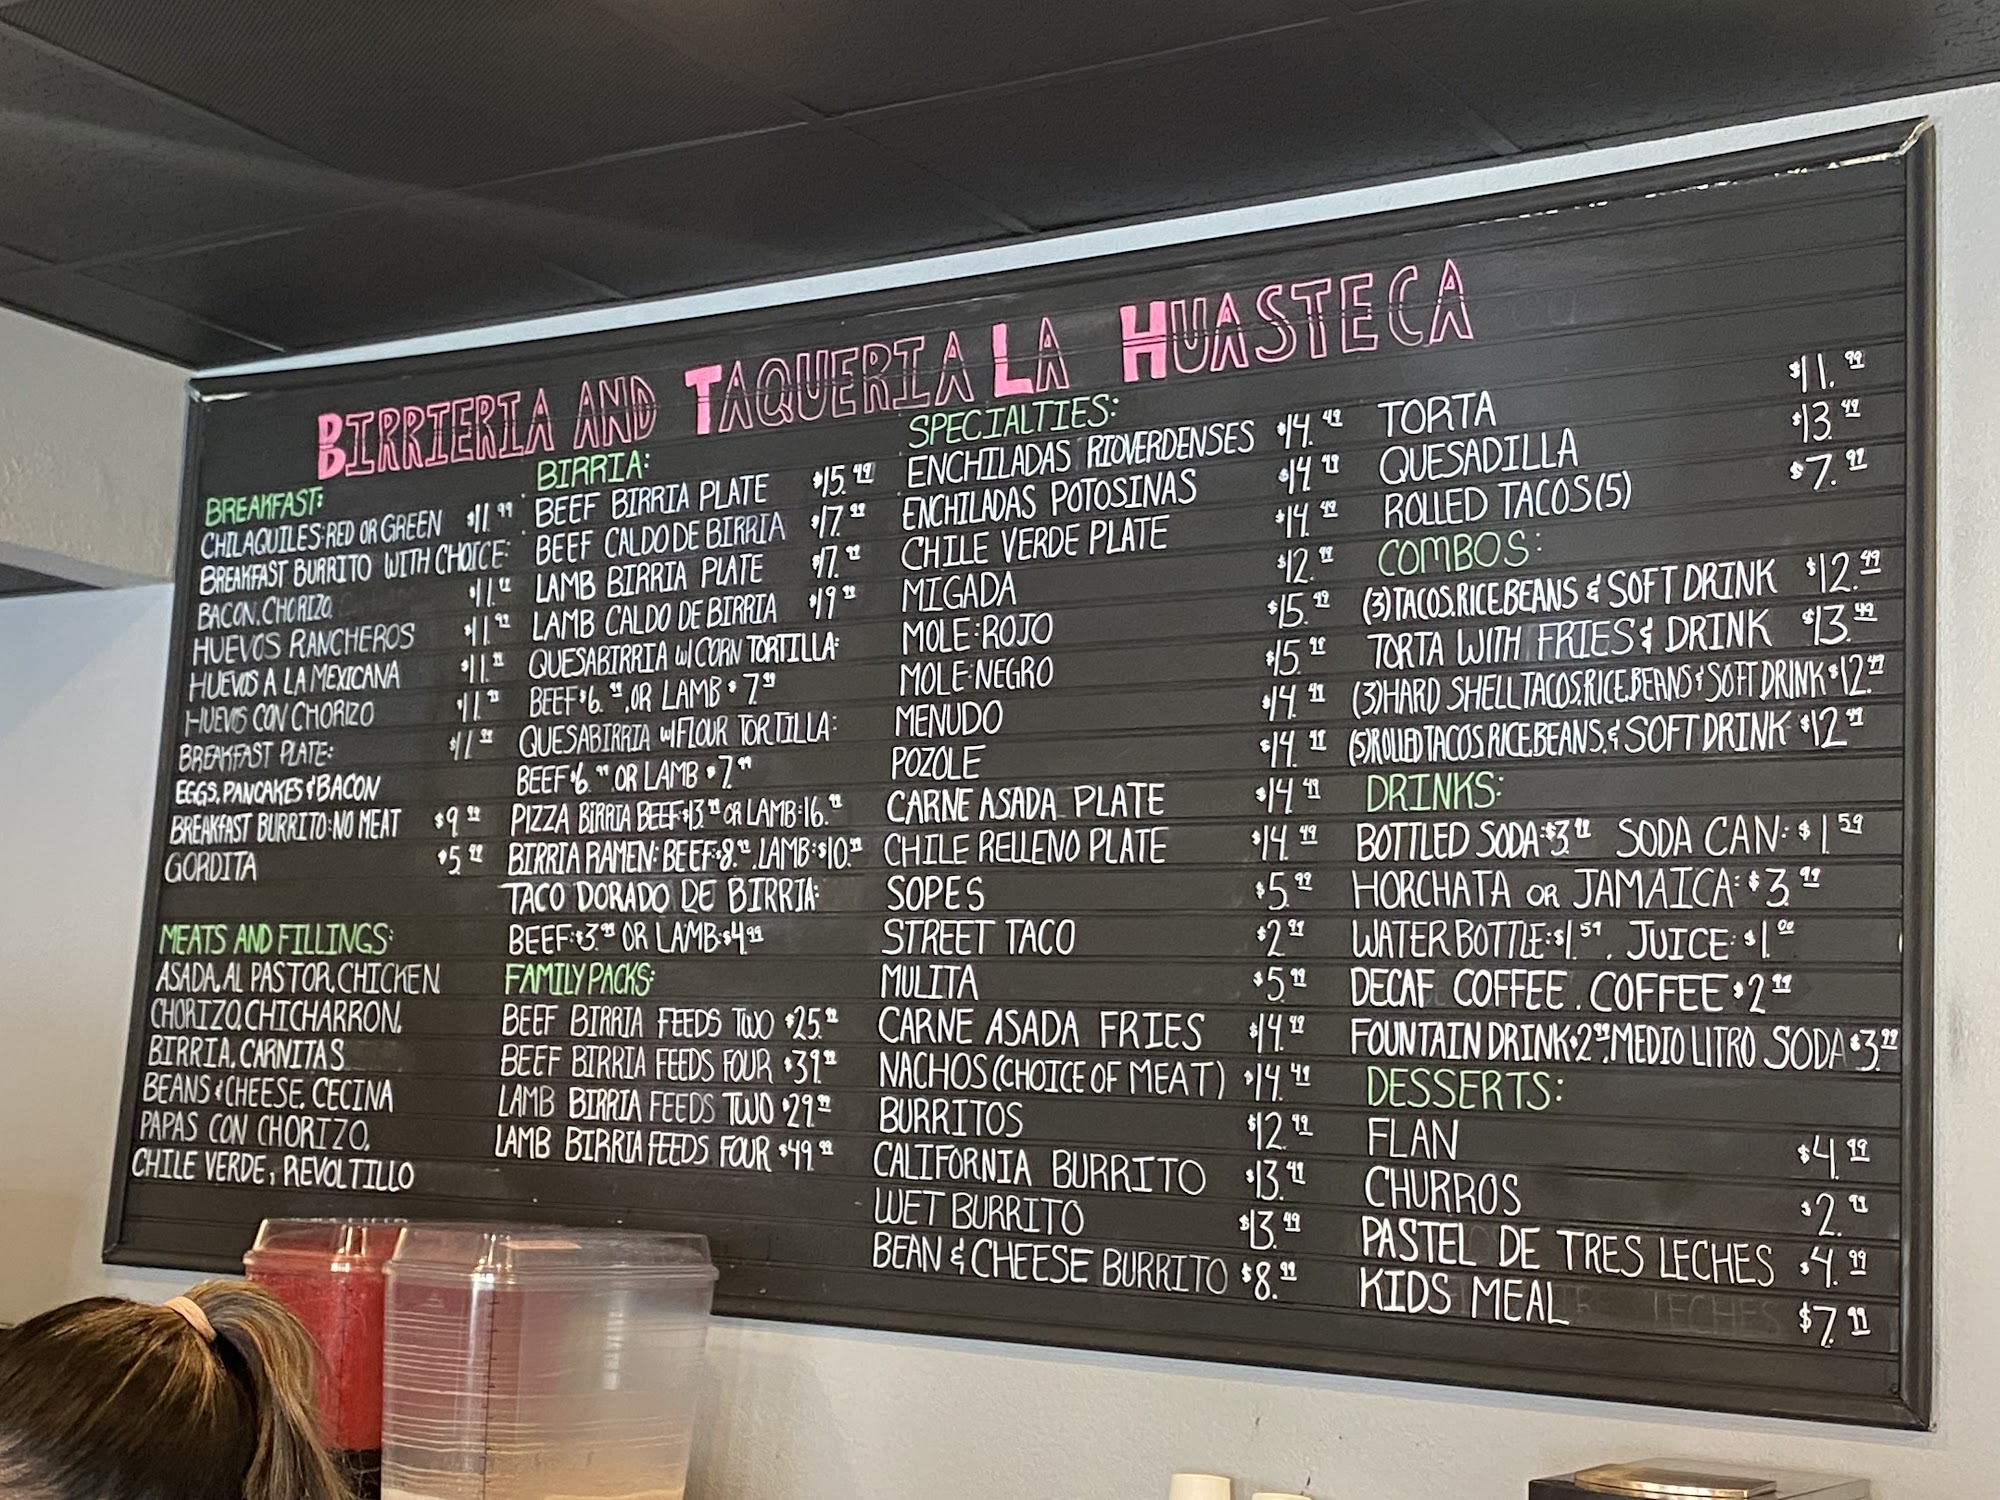 BIRRIERIA AND TAQUERIA LA HUASTECA
BREAKFAST:
CHILAQUILES:RED OR GREEN $11.99
BREAKFAST BURRITO WITH CHOICE:
BACON, CHORIZO, $11.99
HUEVOS RANCHEROS $11.99
HUEVOS A LA MEXICANA $11.99
HUEVOS CON CHORIZO $11.99
BREAKFAST PLATE: $11.99
EGGS, PANCAKES & BACON
BREAKFAST BURRITO:NO MEAT $9.99
GORDITA $5.99
MEATS AND FILLINGS:
ASADA, AL PASTOR, CHICKEN
CHORIZO, CHICHARRON,
BIRRIA, CARNITAS
BEANS & CHEESE, CECINA
PAPAS CON CHORIZO,
CHILE VERDE, REVOLTILLO
BIRRIA:
BEEF BIRRIA PLATE $15.49
BEEF CALDO DE BIRRIA $17.99
LAMB BIRRIA PLATE $17.99
LAMB CALDO DE BIRRIA $19.99
QUESABIRRIA W/CORN TORTILLA:
BEEF $6.99, OR LAMB $7.99
QUESABIRRIA W/FLOUR TORTILLA:
BEEF $6.99 OR LAMB $7.99
PIZZA BIRRIA BEEF:$13.99 OR LAMB:16.99
BIRRIA RAMEN: BEEF:$8.99, LAMB:$10.99
TACO DORADO DE BIRRIA:
BEEF:$3.99 OR LAMB:$4.99
FAMILY PACKS:
BEEF BIRRIA FEEDS TWO $25.99
BEEF BIRRIA FEEDS FOUR $39.99
LAMB BIRRIA FEEDS TWO $29.99
LAMB BIRRIA FEEDS FOUR $49.99
SPECIALTIES:
ENCHILADAS RIOVERDENSES $14.49
ENCHILADAS POTOSINAS $14.49
CHILE VERDE PLATE $14.49
MIGADA $12.99
MOLE:ROJO $15.49
MOLE:NEGRO $15.49
MENUDO $14.49
POZOLE $14.49
CARNE ASADA PLATE $14.49
CHILE RELLENO PLATE $14.49
SOPES $5.99
STREET TACO $2.99
MULITA $5.99
CARNE ASADA FRIES $14.49
NACHOS (CHOICE OF MEAT) $14.49
BURRITOS $12.99
CALIFORNIA BURRITO $13.49
WET BURRITO $13.49
BEAN & CHEESE BURRITO $8.99
TORTA $11.99
QUESADILLA $13.49
ROLLED TACOS (5) $7.99
COMBOS:
(3)TACOS,RICE,BEANS & SOFT DRINK $12.49
TORTA WITH FRIES & DRINK $13.49
(3)HARD SHELL TACOS,RICE,BEANS & SOFT DRINK $12.49
(5)ROLLED TACOS,RICE,BEANS, & SOFT DRINK $12.49
DRINKS:
BOTTLED SODA:$3.99 SODA CAN: $1.59
HORCHATA OR JAMAICA: $3.99
WATER BOTTLE:$1.59, JUICE: $1.00
DECAF COFFEE, COFFEE $2.99
FOUNTAIN DRINK $2.99, MEDIO LITRO SODA $3.99
DESSERTS:
FLAN $4.99
CHURROS $2.99
PASTEL DE TRES LECHES $4.99
KIDS MEAL $7.99